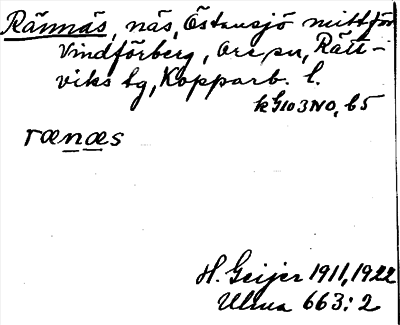 Rännäs, näs, Östansjö mittför
Vindförberg, Ore sn, Rätt-
viks tg, Kopparb. l.
kG103NO, b5
rænæs
H. Geijer 1911, 1922
Ulma 663:2